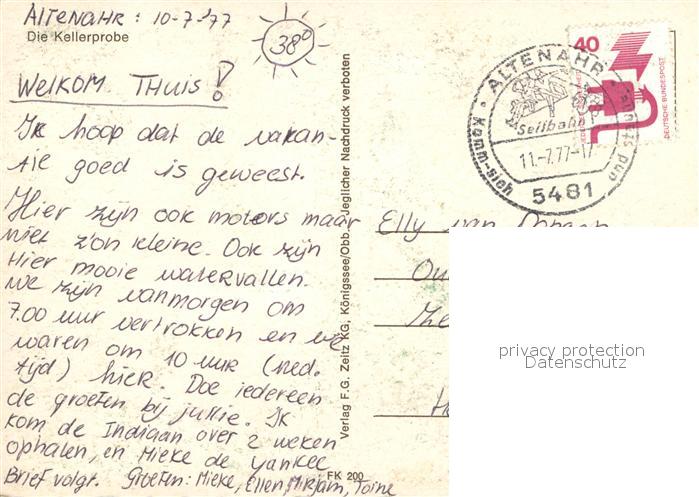 ALTENAHR: 10-7-'77
Die Kellerprobe
38°
WELKOM THUIS!
Ik hoop dat de vakan-
tie goed is geweest.
Hier zijn ook motors maar
niet z'on kleine. Ook zijn
Hier mooie watervallen.
we zijn vanmorgen om
7.00 uur vertrokken en we
waren om 10 uur (ned.
tijd) hier. Doe iedereen
de groeten bij jullie. Ik
kom de Indiaan over 2 weken
ophalen, en Mieke de yankee
Brief volgt. Groeten: Mieke, Ellen, Mirjam, Toine
Verlag F.G. Zeitz KG, Königssee/Obb. Jeglicher Nachdruck verboten
FK 200
40
DEUTSCHE BUNDESPOST
ALTENAHR
Seilbahn
11.-7.77-17
5481
Komm-sieh
und
Elly van
privacy protection
Datenschutz